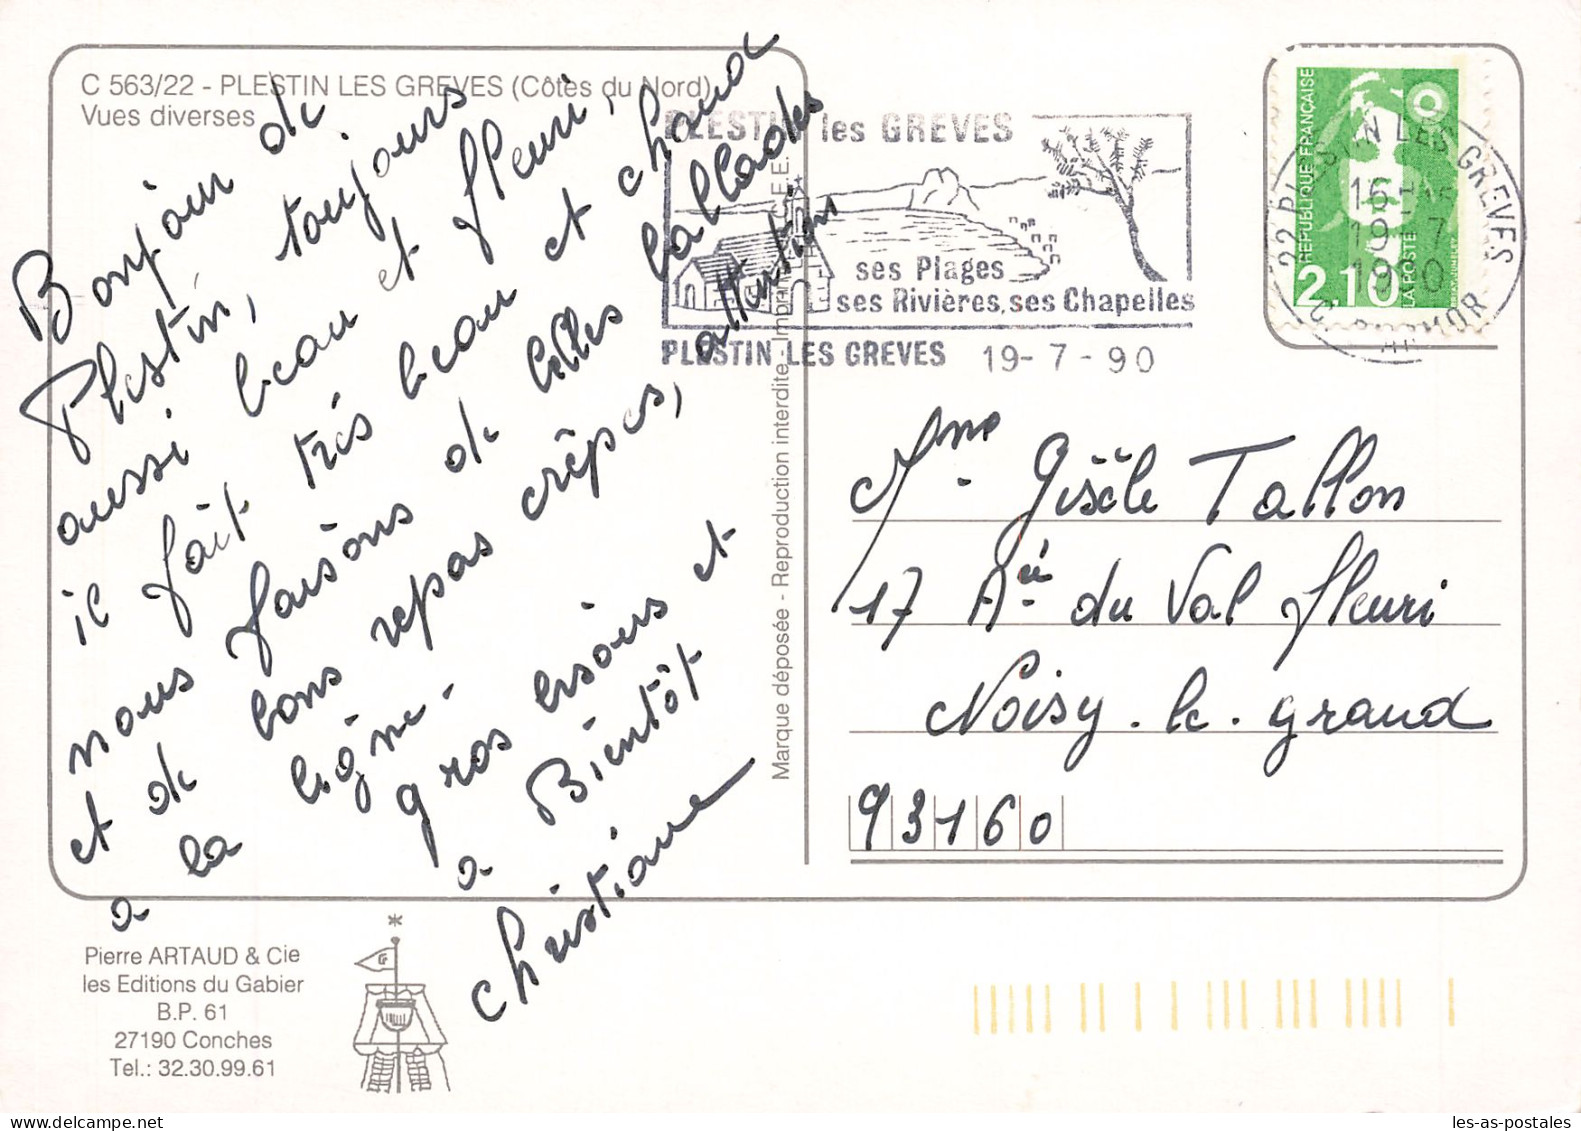 C 563/22 - PLESTIN LES GREVES (Côtes du Nord)
Vues diverses
Bonjour de
Plestin, toujours
aussi beau et fleuri,
il fait très beau et chaud
nous faisons de belles ballades
et de bons repas crêpes, attention
a la ligne.
gros bisous et
a Bientôt
Christiane
Pierre ARTAUD & Cie
les Editions du Gabier
B.P. 61
27190 Conches
Tel.: 32.30.99.61
Marque déposée - Reproduction interdite - Imprimé C.E.E.
PLESTIN les GREVES
ses Plages
ses Rivières, ses Chapelles
PLESTIN LES GREVES 19-7-90
RÉPUBLIQUE FRANÇAISE
2,10
LA POSTE
22 PLESTIN LES GREVES
16 H
19 - 7
1990
C. D'ARMOR
Mme Gisèle Tallon
17 Aé du Val fleuri
Noisy. le. grand
93160
les-as-postales